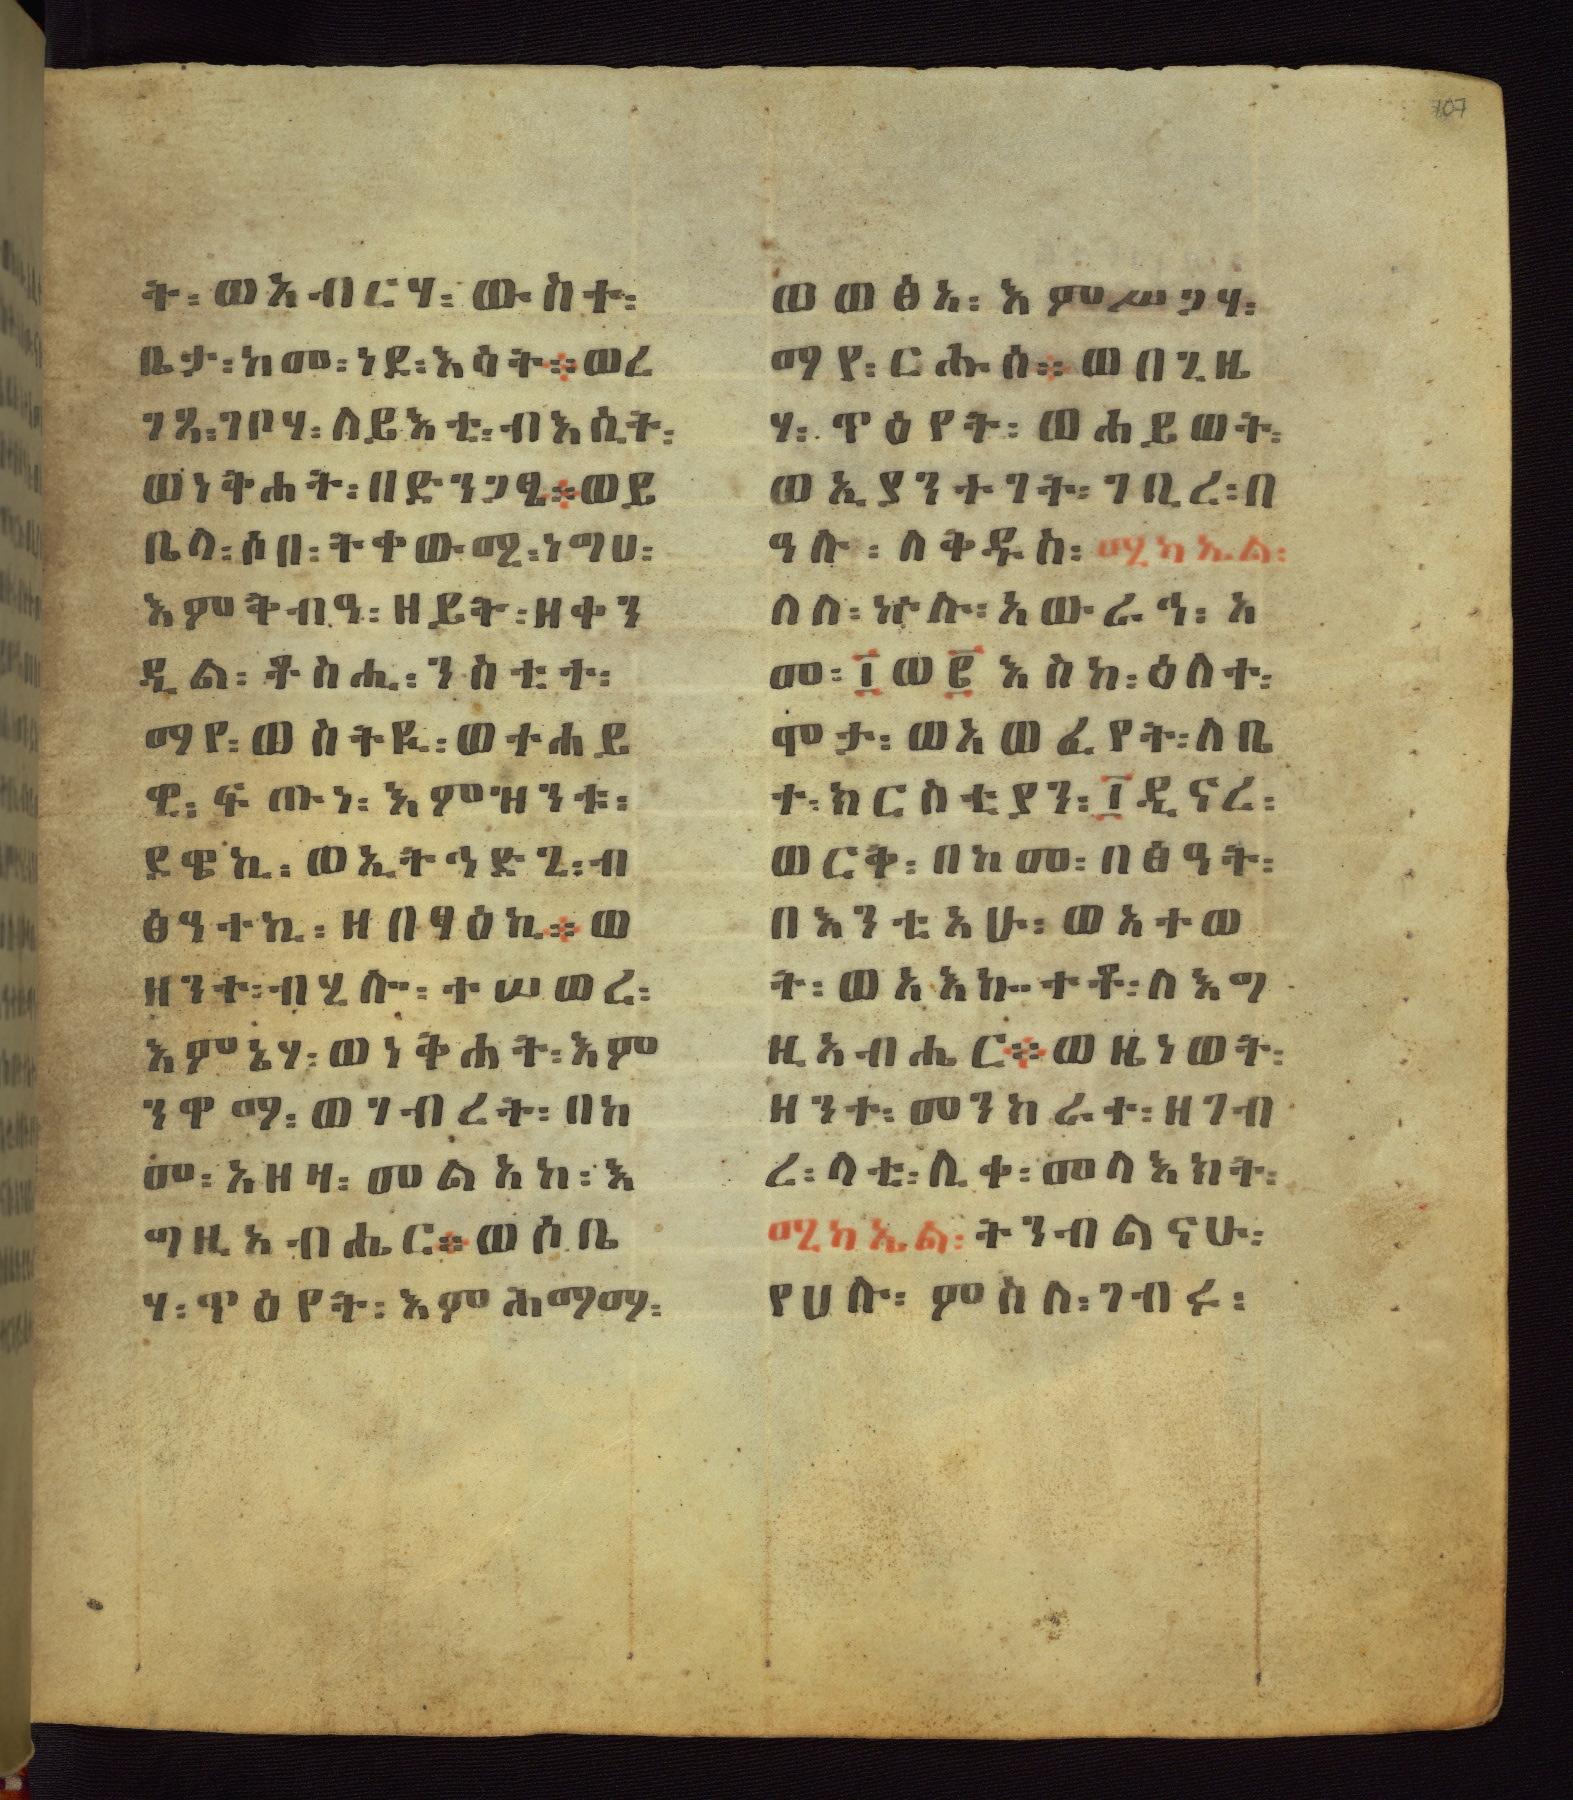 107
ት፡ ወአብርሃ፡ ውስተ፡
ቤታ፡ ከመ፡ ነደ፡ እሳት፨ ወረ
ገጻ፡ ገቦሃ፡ ለይእቲ፡ ብእሲት፡
ወነቅሐት፡ በድንጋፄ፨ ወይ
ቤላ፡ ሶበ፡ ትቀውሚ፡ ነግሀ፡
እምቅብዓ፡ ዘይት፡ ዘቀን
ዲል፡ ቶስሒ፡ ንስቲተ፡
ማየ፡ ወስትዪ፡ ወተሐይ
ዊ፡ ፍጡነ፡ እምዝንቱ፡
ደዌኪ፡ ወኢትኅድጊ፡ ብ
ፅዓተኪ፡ ዘበፃዕኪ፨ ወ
ዘንተ፡ ብሂሎ፡ ተሠወረ፡
እምኔሃ፡ ወነቅሐት፡ እም
ንዋማ፡ ወገብረት፡ በከ
መ፡ አዘዛ፡ መልአከ፡ እ
ግዚአብሔር፨ ወሶቤ
ሃ፡ ጥዕየት፡ እምሕማማ፡
ወወፅአ፡ እምሥጋሃ፡
ማየ፡ ርሑስ፨ ወበጊዜ
ሃ፡ ጥዕየት፡ ወሐይወት፡
ወኢያንተገት፡ ገቢረ፡ በ
ዓሉ፡ ለቅዱስ፡ ሚካኤል፡
ለለ፡ ኵሉ፡ አውራኅ፡ አ
መ፡ ፲ወ፪ እስከ፡ ዕለተ፡
ሞታ፡ ወአወፈየት፡ ለቤ
ተ፡ ክርስቲያን፡ ፲ዲናረ፡
ወርቅ፡ በከመ፡ በፅዓት፡
በእንቲአሁ፡ ወአተወ
ት፡ ወአእኰተቶ፡ ለእግ
ዚአብሔር፨ ወዜነወት፡
ዘንተ፡ መንክራተ፡ ዘገብ
ረ፡ ላቲ፡ ሊቀ፡ መላእክት፡
ሚካኤል፡ ትንብልናሁ፡
የሀሉ፡ ምስለ፡ ገብሩ፡